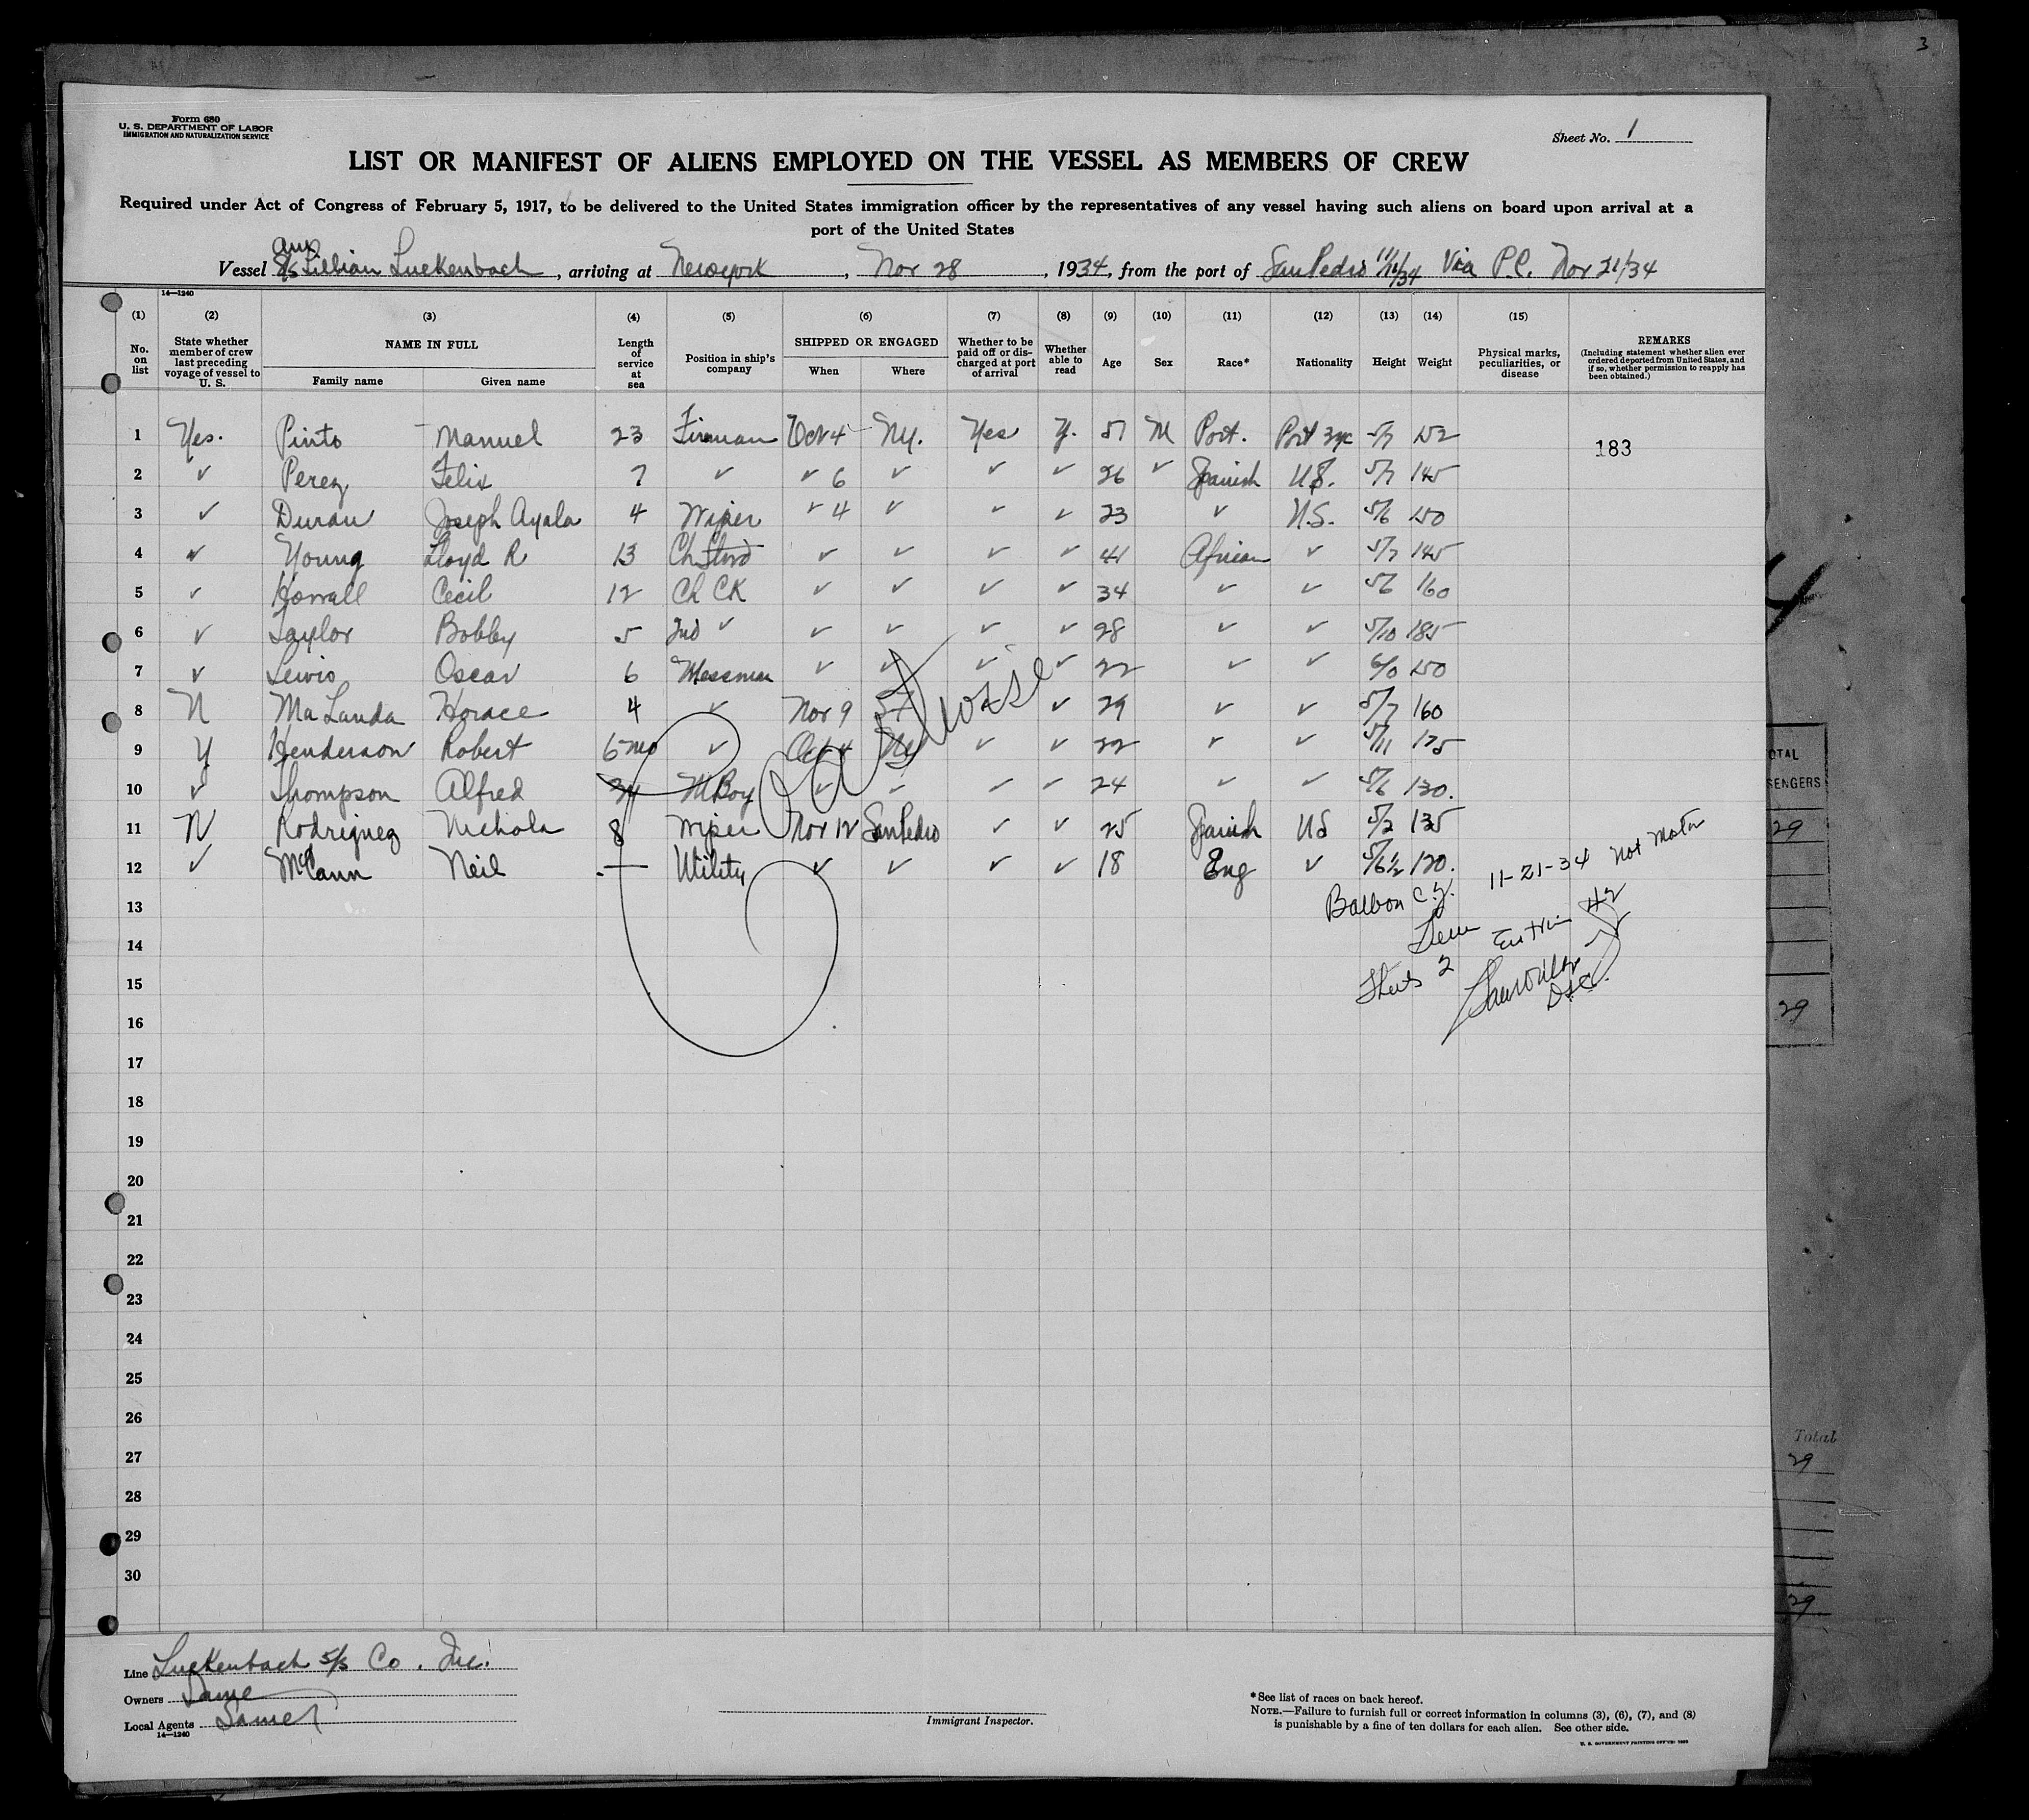 3
Form 680
U. S. DEPARTMENT OF LABOR
IMMIGRATION AND NATURALIZATION SERVICE
Sheet No. 1
LIST OR MANIFEST OF ALIENS EMPLOYED ON THE VESSEL AS MEMBERS OF CREW
Required under Act of Congress of February 5, 1917, to be delivered to the United States immigration officer by the representatives of any vessel having such aliens on board upon arrival at a
port of the United States
Am
Vessel S/S Lillian Luckenbach, arriving at New York, Nov 28, 1934, from the port of San Pedro 11/11/34 Via P.C. Nov 21/34
14—1240
(1) (2) (3) (4) (5) (6) (7) (8) (9) (10) (11) (12) (13) (14) (15)
No. on list
State whether member of crew last preceding voyage of vessel to U. S.
NAME IN FULL
Family name Given name
Length of service at sea
Position in ship's company
SHIPPED OR ENGAGED
When Where
Whether to be paid off or discharged at port of arrival
Whether able to read
Age
Sex
Race*
Nationality
Height
Weight
Physical marks, peculiarities, or disease
REMARKS
(Including statement whether alien ever ordered deported from United States, and if so, whether permission to reapply has been obtained.)
1 Yes. Pinto Manuel 23 Fireman Oct 4 N.Y. Yes Y. 51 M Port. Port 5/7 152
183
2 ✓ Perez Felix 7 ✓ ✓ 6 ✓ ✓ ✓ 26 ✓ Spanish U.S. 5/7 145
3 ✓ Duran Joseph Ayala 4 Wiper ✓ 4 ✓ ✓ ✓ 23 ✓ U.S. 5/6 150
4 ✓ Young Lloyd R 13 Ch Stwd ✓ ✓ ✓ ✓ 41 African ✓ 5/7 145
5 ✓ Howall Cecil 12 Ch CK ✓ ✓ ✓ ✓ 34 ✓ ✓ 5/6 160
6 ✓ Taylor Bobby 5 2nd ✓ ✓ ✓ ✓ ✓ 28 ✓ ✓ 5/10 185
7 ✓ Lewis Oscar 6 Messman ✓ ✓ ✓ ✓ 22 ✓ ✓ 6/0 150
8 N Ma Landa Horace 4 ✓ Nov 9 SF ✓ ✓ 29 ✓ ✓ 5/7 160
9 Y Henderson Robert 6 mo ✓ Oct 4 NY ✓ ✓ 22 ✓ ✓ 5/11 175
10 ✓ Thompson Alfred M Boy ✓ ✓ ✓ ✓ 24 ✓ ✓ 5/6 130.
11 N Rodriguez Nichola 8 Wiper Nov 12 San Pedro ✓ ✓ 25 Spanish US 5/2 135
12 ✓ McCann Neil — Utility ✓ ✓ ✓ ✓ 18 Eng ✓ 5/6½ 120.
Coastwise
13
14
15
16
17
18
19
20
21
22
23
24
25
26
27
28
29
30
Balboa C.Z. 11-21-34
Sheets 2
Line Luckenbach S/S Co. Inc.
Owners Same
Local Agents Same
14—1240
Immigrant Inspector.
*See list of races on back hereof.
NOTE.—Failure to furnish full or correct information in columns (3), (6), (7), and (8)
is punishable by a fine of ten dollars for each alien. See other side.
U. S. GOVERNMENT PRINTING OFFICE: 1933
29
29
Total
29
29